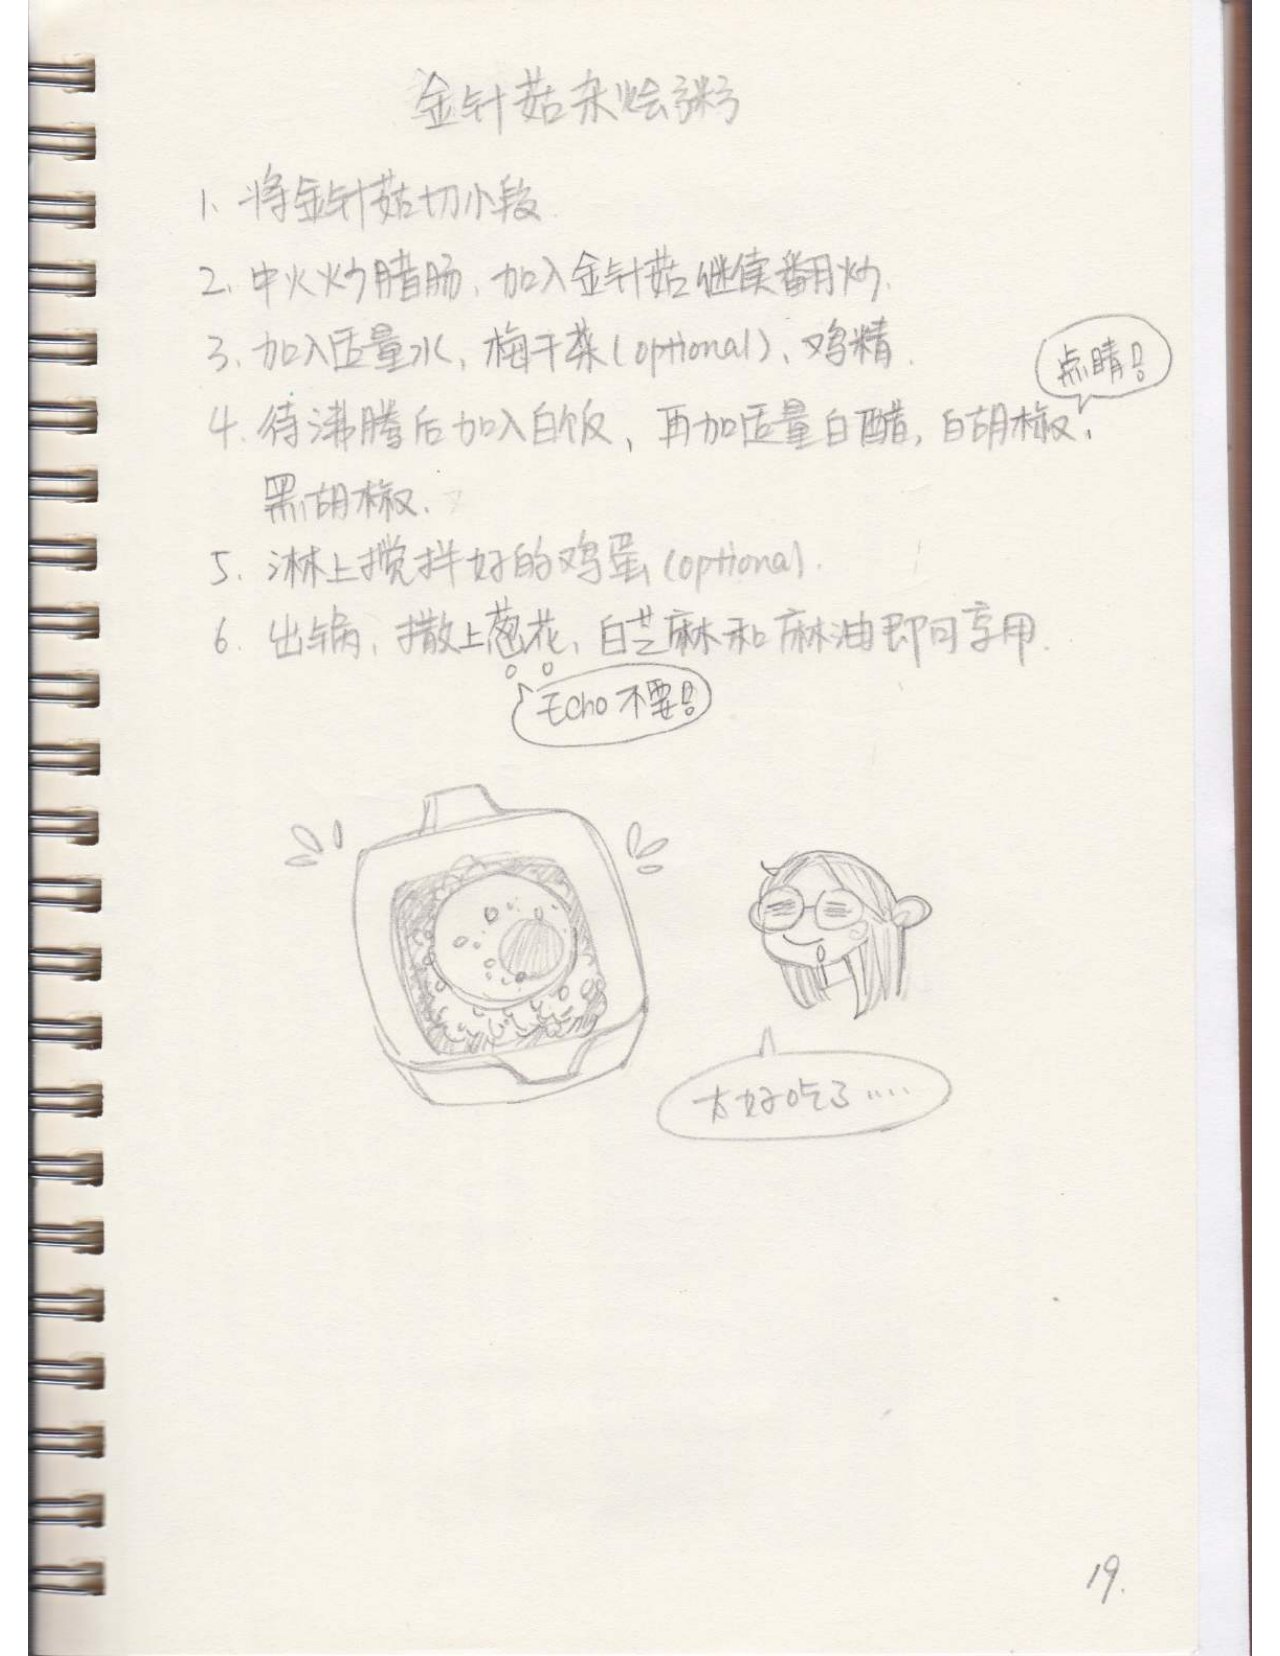 金针菇杂烩粥
1. 将金针菇切小段.
2. 中火炒腊肠, 加入金针菇继续翻炒.
3. 加入适量水, 梅干菜(optional)、鸡精.
点睛!!
4. 待沸腾后加入白饭, 再加适量白醋, 白胡椒,
黑胡椒.
5. 淋上搅拌好的鸡蛋(optional).
6. 出锅, 撒上葱花, 白芝麻和麻油即可享用.
Echo不要!!
太好吃了……
19.